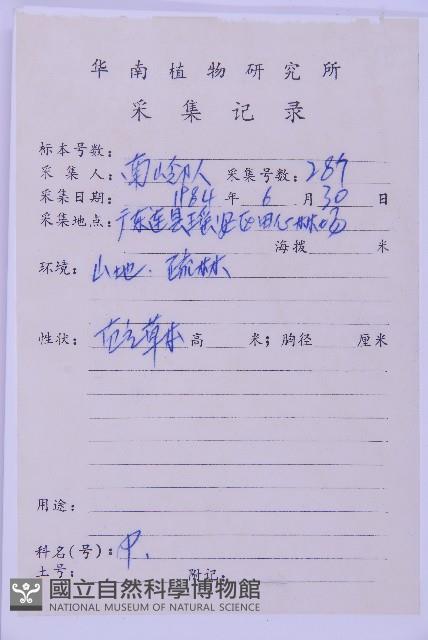 华南植物研究所
采集记录
标本号数：
采集人：南岭队 采集号数：287
采集日期：1984 年 6 月 30 日
采集地点：广东连县瑶安 田心林场
海拨 米
环境：山地．疏林
性状：直立草本 高 米；胸径 厘米
用途：
科名(号)：
土号： 附记：
國立自然科學博物館
NATIONAL MUSEUM OF NATURAL SCIENCE